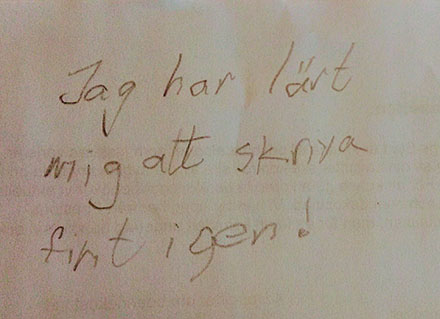 Jag har lärt
mig att skriva
fint igen!